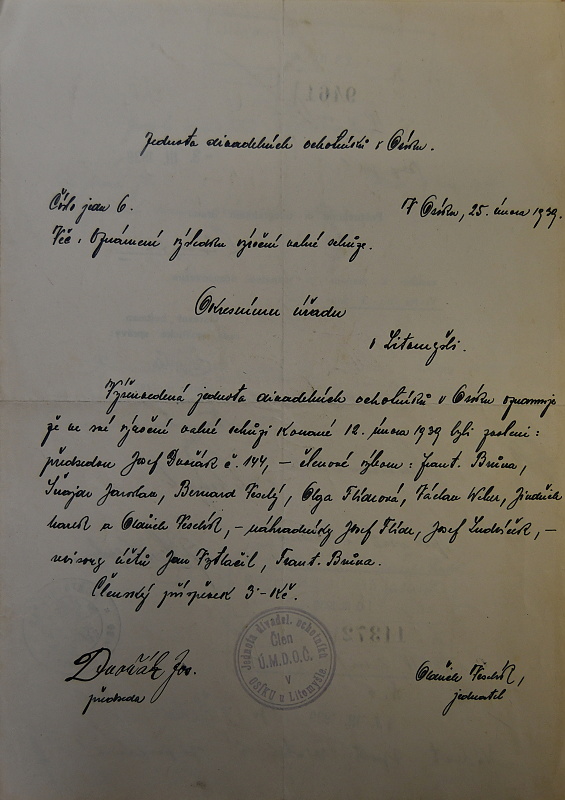 Jednota divadelních ochotníků v Osíku.
Číslo jedn 6.
V Osíku, 25. února 1939.
Věc: Oznámení výsledku výroční valné schůze.
Okresnímu úřadu
v Litomyšli.
Výšeuvedená jednota divadelních ochotníků v Osíku oznamuje
že ve své výroční valné schůzi konané 12. února 1939 byli zvoleni:
předsedou Josef Dvořák č. 144, – členové výboru: Frant. Brůna,
Jaroslav, Bernard Veselý, Olga Flídrová, Václav, Jindřich
a Oldřich, – náhradníky Josef Flídr, Josef Ludvíček, –
revisory účtů Jan Vytlačil, Frant. Brůna.
Členský příspěvek 3·– Kč.
Dvořák Jos.
předseda
Jednota divadel. ochotníků
Člen
Ú.M.D.O.Č.
V
OSÍKU u Litomyšle
Oldřich
jednatel
9461
11372